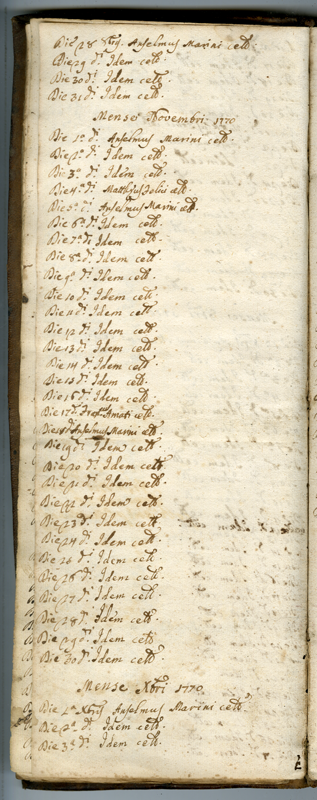 Die 28 8bris. Anselmus Marini celt.
Die 29 d.i Idem celt.
Die 30 d.i Idem celt.
Die 31 d.i Idem celt.
Mense Novembri 1770
Die 1.a d.i Anselmus Marini celt.
Die 2.a d.i Idem celt.
Die 3.a d.i Idem celt.
Die 4.a d.i Matthęus celt.
Die 5.a d.i Anselmus Marini celt.
Die 6.a d.i Idem celt.
Die 7.a d.i Idem celt.
Die 8.a d.i Idem celt.
Die 9.a d.i Idem celt.
Die 10 d.i Idem celt.
Die 11 d.i Idem celt.
Die 12 d.i Idem celt.
Die 13 d.i Idem celt.
Die 14 d.i Idem celt.
Die 15 d.i Idem celt.
Die 16 d.i Idem celt.
Die 17 d.i Amati celt.
Die 18 d.i Anselmus Marini celt.
Die 19 d.i Idem celt.
Die 20 d.i Idem celt.
Die 21 d.i Idem celt.
Die 22 d.i Idem celt.
Die 23 d.i Idem celt.
Die 24 d.i Idem celt.
Die 25 d.i Idem celt.
Die 26 d.i Idem celt.
Die 27 d.i Idem celt.
Die 28 d.i Idem celt.
Die 29 d.i Idem celt.
Die 30 d.i Idem celt.
Mense Xbri 1770
Die 1.a Xbris Anselmus Marini celt.
Die 2.a d.i Idem celt.
Die 3.a d.i Idem celt.